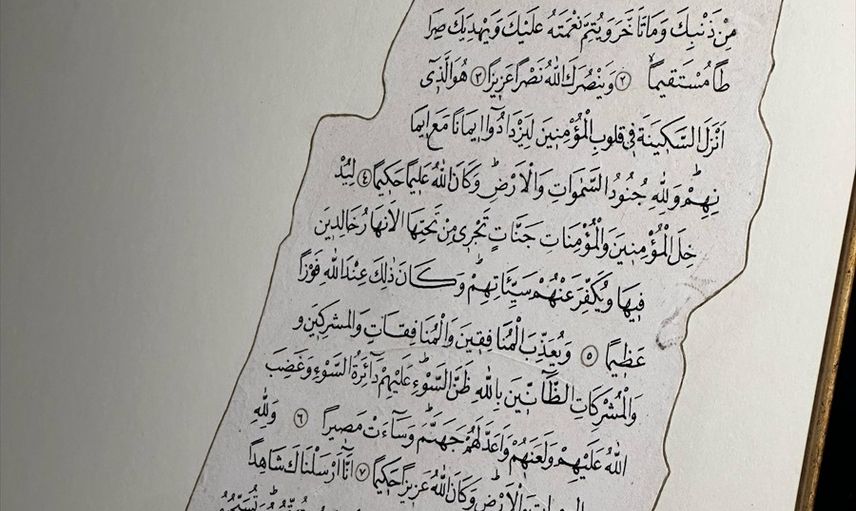 مِنْ ذَنْبِكَ وَمَا تَاَخَّرَ وَيُتِمَّ نِعْمَتَهُ عَلَيْكَ وَيَهْدِيَكَ صِرَا
طًا مُسْتَقِيمًا ٢ وَيَنْصُرَكَ اللهُ نَصْرًا عَزِيزًا ٣ هُوَ الَّذِى
اَنْزَلَ السَّكِينَةَ فِى قُلُوبِ الْمُؤْمِنِينَ لِيَزْدَادُوا اِيمَانًا مَعَ اِيمَا
نِهِمْ وَلِلّٰهِ جُنُودُ السَّمٰوَاتِ وَالْاَرْضِ وَكَانَ اللهُ عَلِيمًا حَكِيمًا ٤ لِيُدْ
خِلَ الْمُؤْمِنِينَ وَالْمُؤْمِنَاتِ جَنَّاتٍ تَجْرِى مِنْ تَحْتِهَا الْاَنْهَارُ خَالِدِينَ
فِيهَا وَيُكَفِّرَ عَنْهُمْ سَيِّئَاتِهِمْ وَكَانَ ذٰلِكَ عِنْدَ اللهِ فَوْزًا
عَظِيمًا ٥ وَيُعَذِّبَ الْمُنَافِقِينَ وَالْمُنَافِقَاتِ وَالْمُشْرِكِينَ و
وَالْمُشْرِكَاتِ الظَّآنِّينَ بِاللهِ ظَنَّ السَّوْءِ عَلَيْهِمْ دَآئِرَةُ السَّوْءِ وَغَضِبَ
اللهُ عَلَيْهِمْ وَلَعَنَهُمْ وَاَعَدَّ لَهُمْ جَهَنَّمَ وَسَآءَتْ مَصِيرًا ٦ وَلِلّٰهِ
وَالْاَرْضِ وَكَانَ اللهُ عَزِيزًا حَكِيمًا ٧ اِنَّا اَرْسَلْنَاكَ شَاهِدًا